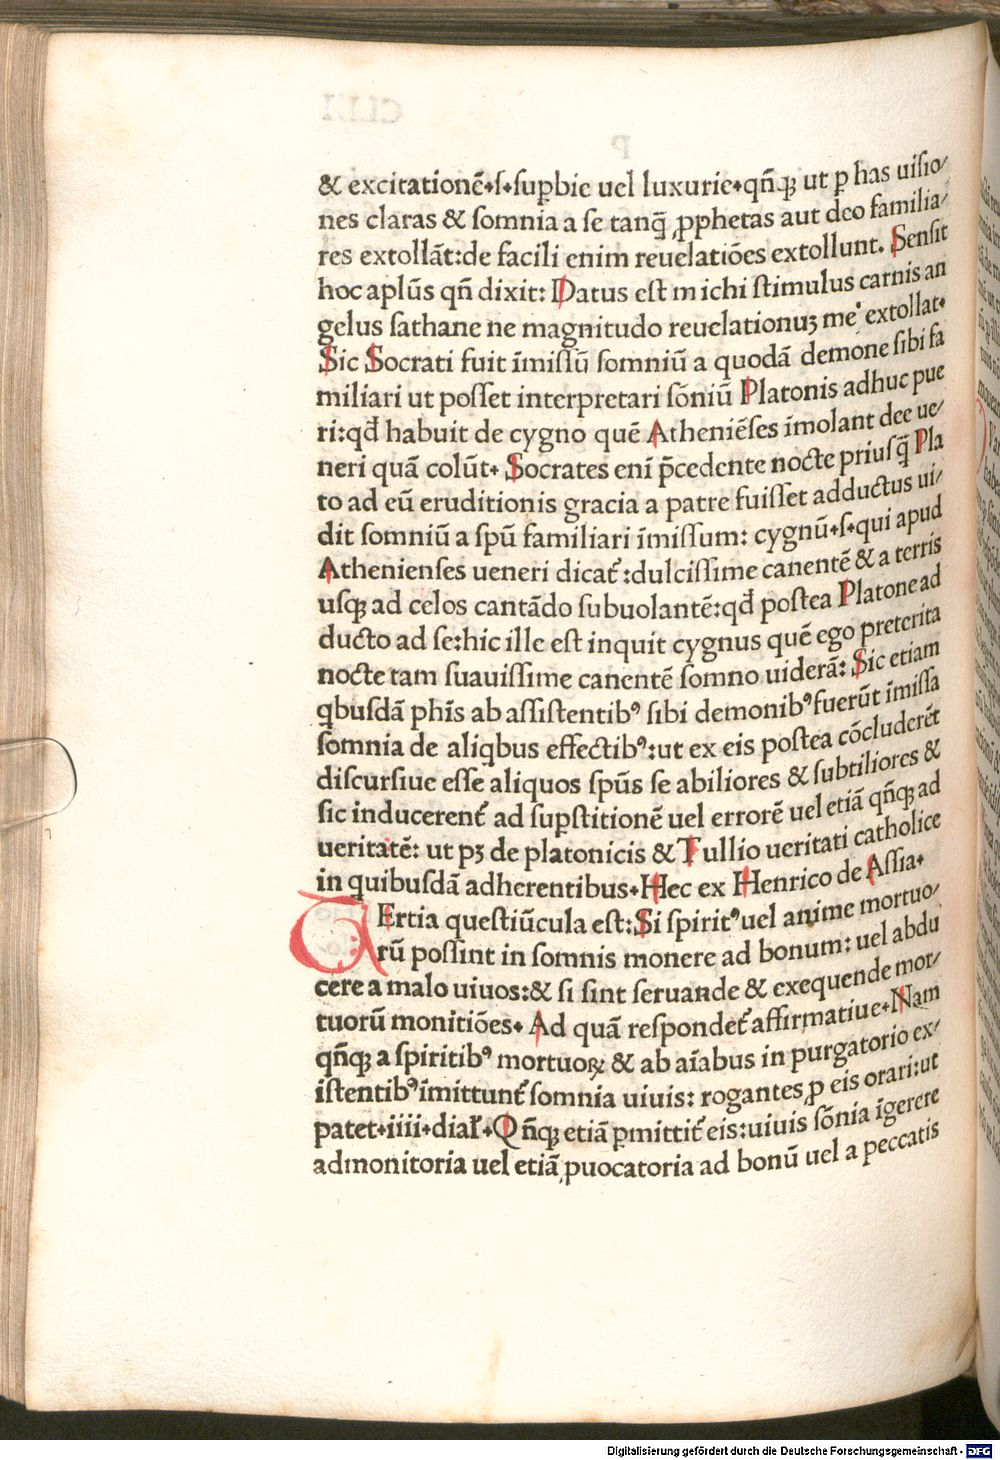 & excitationē·ſ·ſuꝑbie uel luxurie·qñqꝫ ut ꝑ has uiſio/
nes claras & ſomnia a ſe tanq̄ ꝓphetas aut deo familia/
res extollāt:de facili enim reuelatiões extollunt. Senſit
hoc aplūs qñ dixit: Datus eſt michi ſtimulus carnis an
gelus ſathane ne magnitudo reuelationuꝫ me extollat·
Sic Socrati fuit īmiſſū ſomniū a quodā demone ſibi fa
miliari ut poſſet interpretari ſōniū Platonis adhuc pue
ri:qđ habuit de cygno quē Atheniēſes īmolant dee ue/
neri quā colūt· Socrates enī p̄cedente nocte priuſq̄ Pla
to ad eū eruditionis gracia a patre fuiſſet adductus ui/
dit ſomniū a ſpū familiari īmiſſum: cygnū·ſ·qui apud
Athenienſes ueneri dicat᷑:dulciſſime canentē & a terris
uſqꝫ ad celos cantādo ſubuolantē:qđ poſtea Platone ad
ducto ad ſe:hic ille eſt inquit cygnus quē ego preterita
nocte tam ſuauiſſime canentē ſomno uiderā: Sic etiam
qbuſdā phīs ab aſſiſtentibꝰ ſibi demonibꝰ fuerūt īmiſſa
ſomnia de aliqbus effectibꝰ:ut ex eis poſtea cōcluderēt
diſcurſiue eſſe aliquos ſpūs ſe abiliores & ſubtiliores &
ſic inducerent᷑ ad ſuꝑſtitionē uel errorē uel etiā qñqꝫ ad
ueritatē: ut pꝫ de platonicis & Tullio ueritati catholice
in quibuſdā adherentibus·Hec ex Henrico de Aſſia·
TErtia queſtiūcula eſt:Si ſpiritꝰ uel anime mortuo/
rū poſſint in ſomnis monere ad bonum: uel abdu
cere a malo uiuos:& ſi ſint ſeruande & exequende mor/
tuorū monitiões· Ad quā reſpondet᷑ affirmatiue·Nam
qñqꝫ a ſpiritibꝰ mortuoꝝ & ab aīabus in purgatorio ex/
iſtentibꝰ īmittunt᷑ ſomnia uiuis: rogantes ꝓ eis orari:ut
patet·iiii·dial̓·Qñqꝫ etiā ꝑmittit᷑ eis:uiuis ſōnia īgerere
admonitoria uel etiā ꝓuocatoria ad bonū uel a peccatis
Digitalisierung gefördert durch die Deutsche Forschungsgemeinschaft - DFG